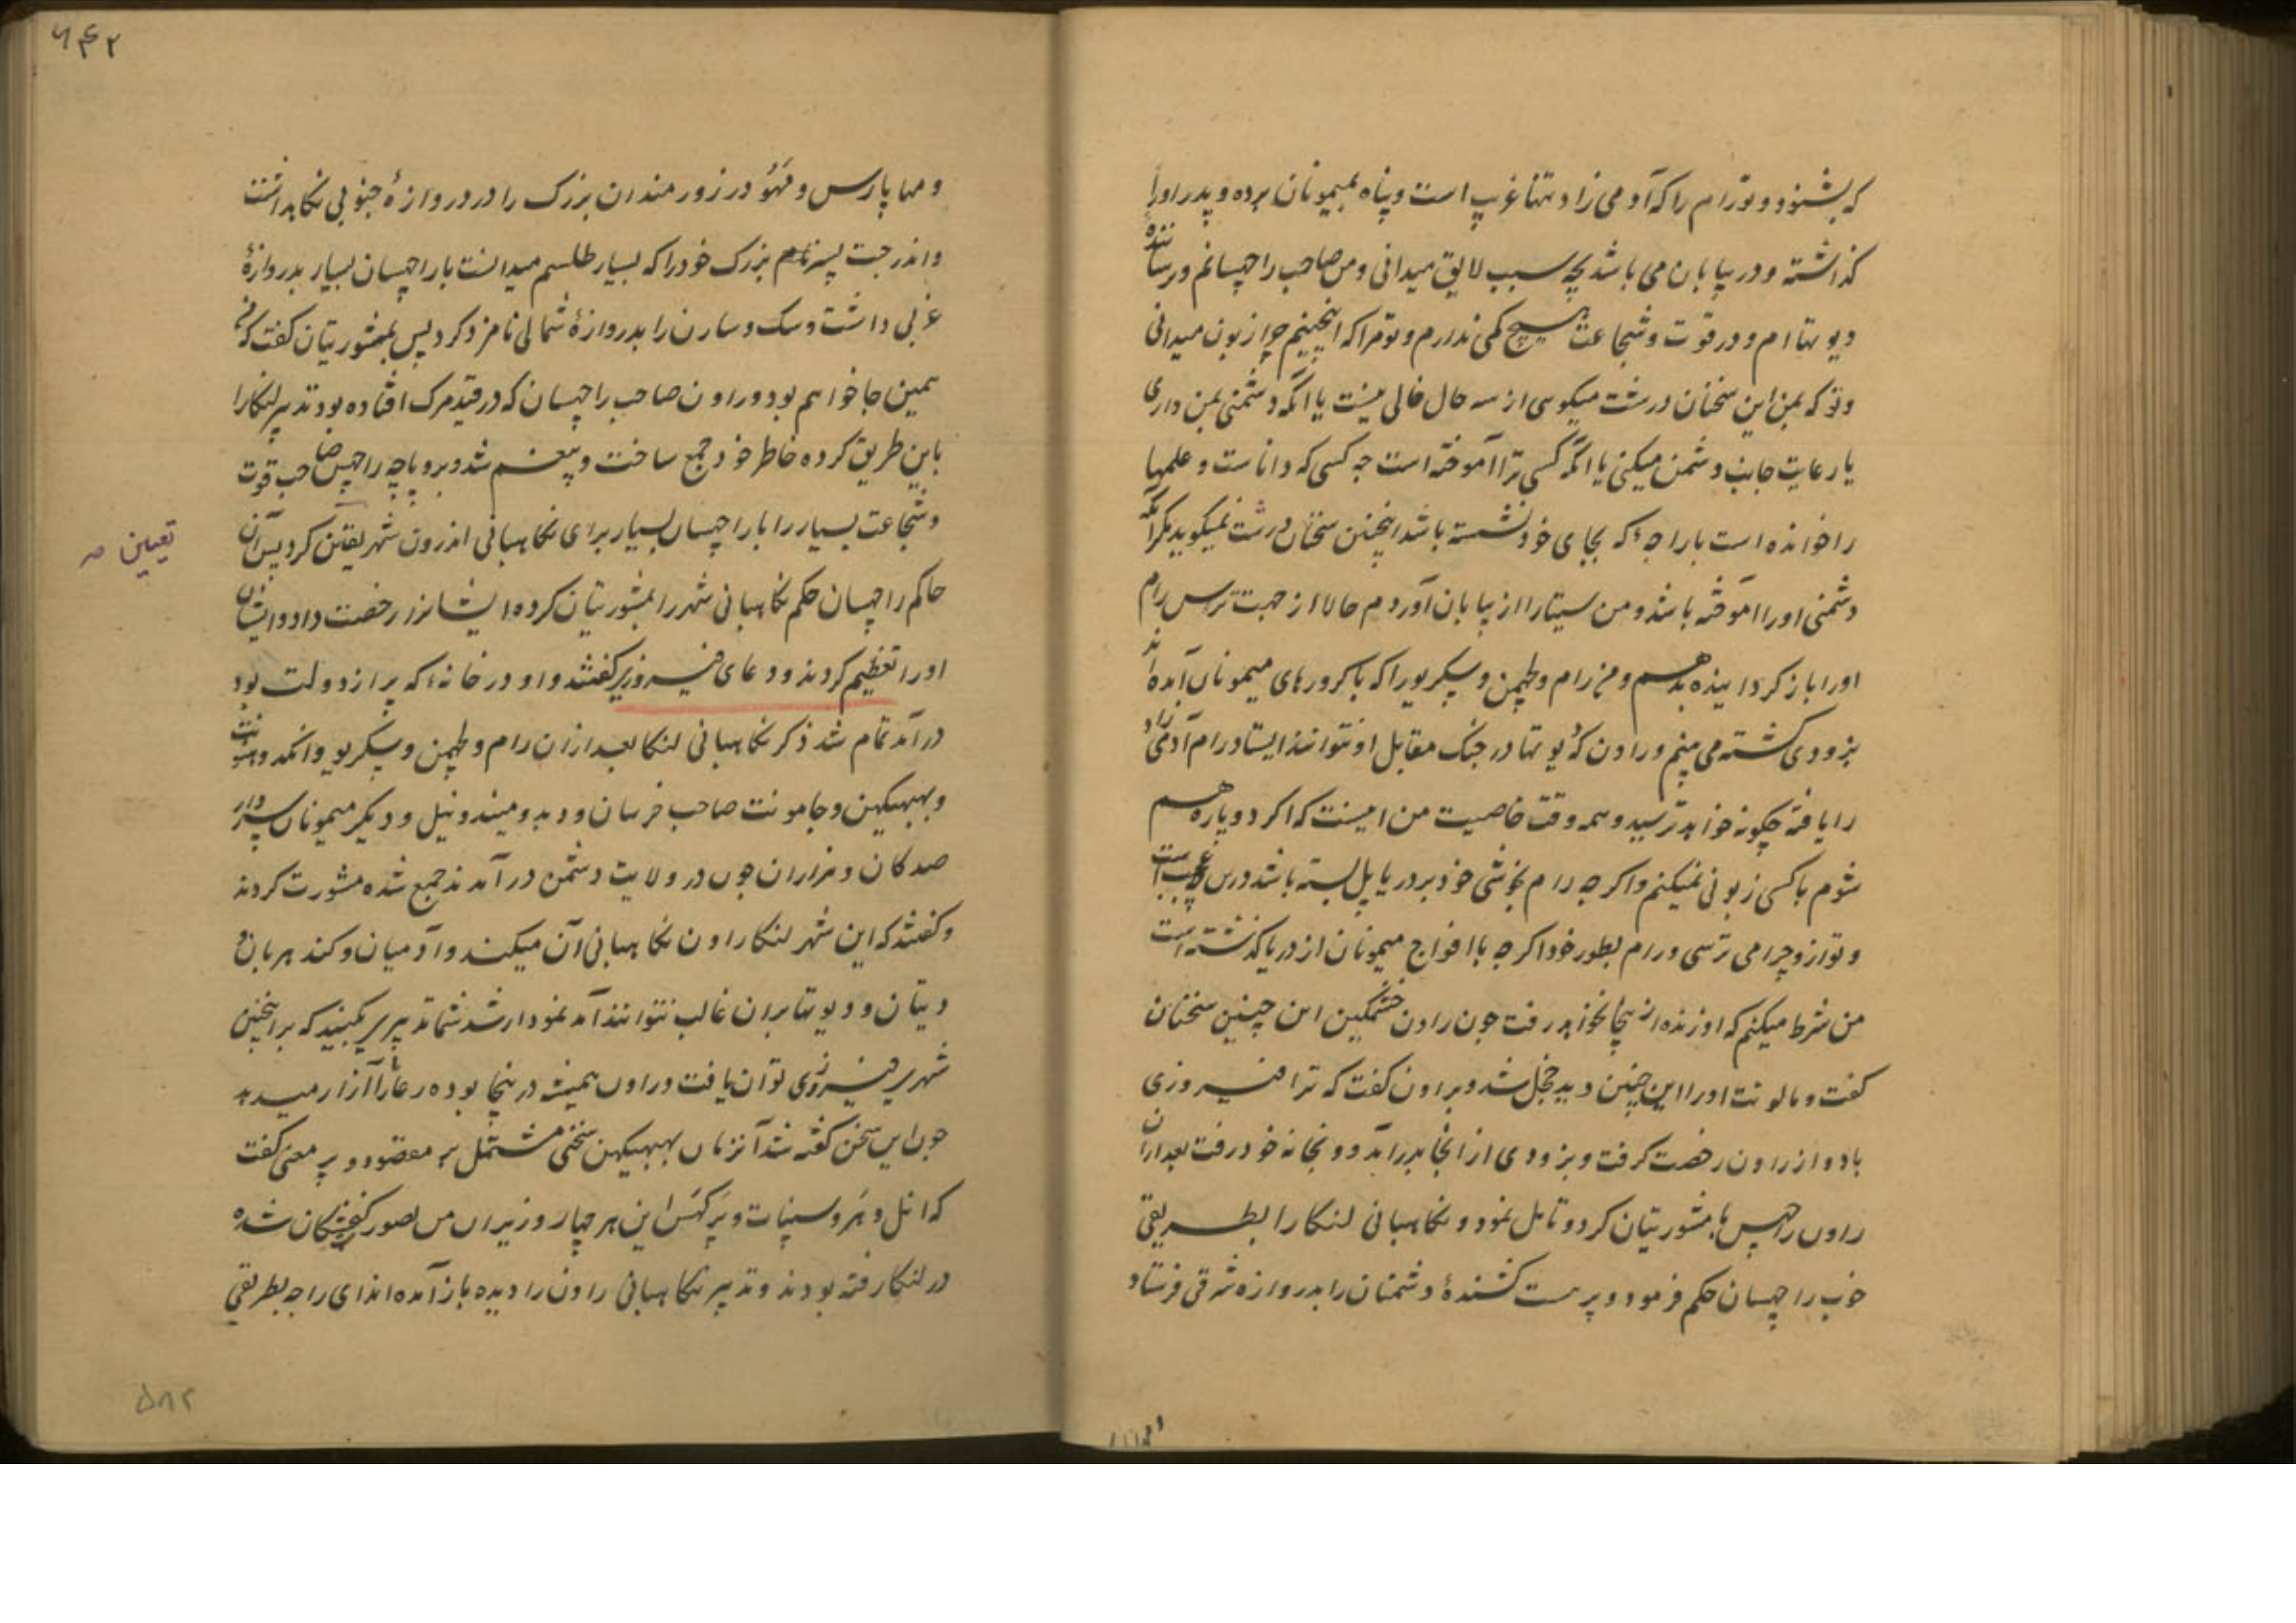 که بشنود و تو رام را که آدمی زاد و تنها غریب است و پناه بمیمونان برده و پدر او را
گذاشته و در بیابان می باشد بچه سبب لایق میدانی و من صاحب راچهسانم و ترساننده
دیوتها ام و در قوت و شجاعت هیچ کمی ندارم و تو مرا که اینچنینم چرا زبون میدانی
و تو که بمن این سخنان درشت میگوی از سه حال خالی نیست یا آنکه دشمنی بمن داری
یا رعایت جانب دشمن میکنی یا آنکه کسی ترا آموخته است چه کسی که داناست و علمها
را خوانده است با راجهٔ که بجای خود نشسته باشد اینچنین سخنان درشت نمیگوید مگر آنکه
دشمنی او را آموخته باشد و من سیتا را از بیابان آوردم حالا از جهت ترس رام
او را باز گردانیده بدهم و من رام و لچهمن و سگریو را که با کرورهای میمونان آمده اند
بزودی کشته می بینم و راون که دیوتها در جنگ مقابل او نتوانند ایستاد رام آدمی زاد
را یافته چگونه خواهد ترسید و همه وقت خاصیت من اینست که اگر دو پاره هم
شوم با کسی زبونی نمیکنم و اگرچه رام بخوشی خود بر دریا پل بسته باشد درین عجب است
و تو ازو چرا می ترسی و رام بطور خود اگرچه با افواج میمونان از دریا گذشته است
من شرط میکنم که او زنده از اینجا نخواهد رفت چون راون خشمگین این چنین سخنان
گفت و مالونت او را این چنین دید خجل شد و براون گفت که ترا فیروزی
باد و از راون رخصت گرفت و بزودی از آنجا بدر آمد و بخانه خود رفت بعد از ان
راون راچهس با مشورتیان کرد و تامل نمود و نگاهبانی لنکا را بطریقی
خوب راچهسان حکم فرمود و پرهست کشندهٔ دشمنان را بدروازه شرقی فرستاد
۶۴۲
و مها پارس و مهودر زورمندان بزرگ را در دروازهٔ جنوبی نگاهداشت
و اندرجت پسر بزرگ خود را که بسیار طلسم میدانست با راچهسان بسیار بدروازهٔ
غربی داشت و سک و سارن را بدروازهٔ شمالی نامزد کرد پس بمشورتیان گفت که من
همین جا خواهم بود و راون صاحب راچهسان که در قید مرگ افتاده بود تدبیر لنکا را
باین طریق کرده خاطر خود جمع ساخت و بیغم شد و بروپاچه راچهس صاحب قوت
و شجاعت بسیار را با راچهسان بسیار برای نگاهبانی اندرون شهر یقین کرد پس آن
تعیین صه
حاکم راچهسان حکم نگاهبانی شهر را بمشورتیان کرده ایشانرا رخصت داد و ایشان
او را تعظیم کردند و دعای فیروزی گفتند و او در خانهٔ که پر از دولت بود
در آمد تمام شد ذکر نگاهبانی لنکا بعد ازان رام و لچهمن و سگریو و انگد و هنونت
و بهبهیکهن و جامونت صاحب خرسان و دبد و میند و نیل و دیگر میمونان سردار
صدگان و هزاران چون در ولایت دشمن در آمدند جمع شده مشورت کردند
و گفتند که این شهر لنکا راون نگاهبانی آن میکند و آدمیان و گندهربان و
دیتان و دیوتها بران غالب نتوانند آمد نمودار شد شما تدبیر بکنید که بر اینچنین
شهر فیروزی توان یافت و راون همیشه درینجا بوده رعایا را آزار میدهد
چون این سخن گفته شد آنزمان بهبهیکهن سخنی مشتمل بر مقصود و پر معنی گفت
که انل و هر و سنپات و پرگهس این هر چهار وزیران من بصورت کنجشکان شده
در لنکا رفته بودند و تدبیر نگاهبانی راون را دیده باز آمده اند ای راجه بطریقی
۵۸۲